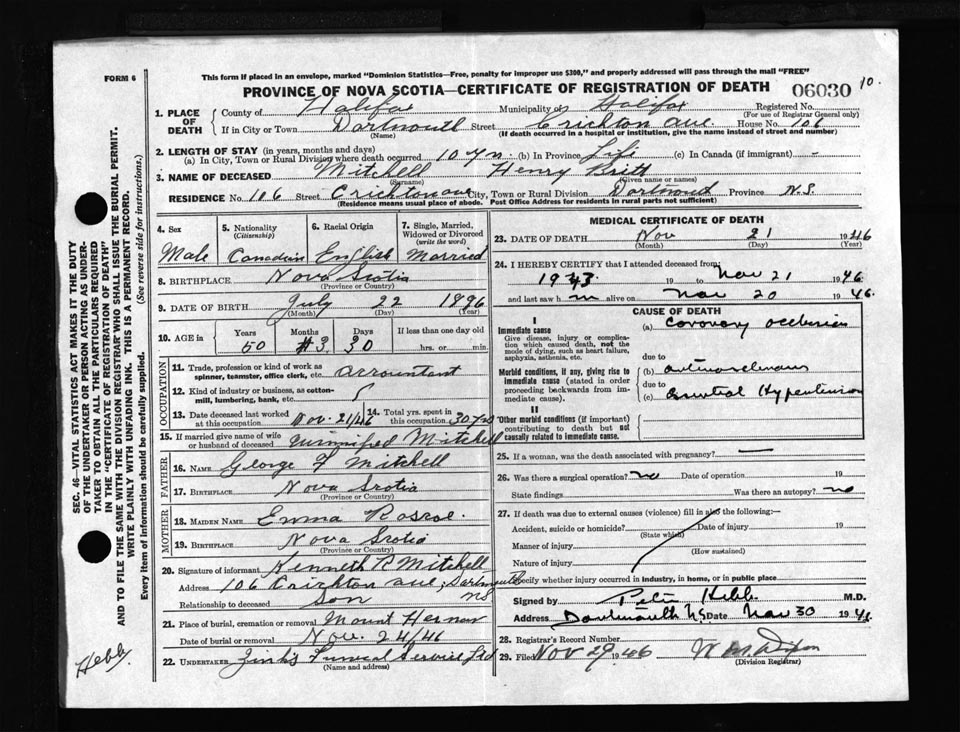 FORM 6
This form if placed in an envelope, marked "Dominion Statistics—Free, penalty for improper use $300," and properly addressed will pass through the mail "FREE"
PROVINCE OF NOVA SCOTIA—CERTIFICATE OF REGISTRATION OF DEATH 06030 10.
1. PLACE OF DEATH
County of Halifax Municipality of Halifax Registered No.
(For use of Registrar General only)
If in City or Town Dartmouth Street Crichton Ave House No. 106
(Name) (If death occurred in a hospital or institution, give the name instead of street and number)
2. LENGTH OF STAY (in years, months and days)
(a) In City, Town or Rural Division where death occurred 10 yrs (b) In Province Life (c) In Canada (if immigrant) -
3. NAME OF DECEASED Mitchell Henry Britt
(Surname) (Given name or names)
RESIDENCE No. 106 Street Crichton ave City, Town or Rural Division Dartmouth Province N.S.
(Residence means usual place of abode. Post Office Address for residents in rural parts not sufficient)
4. Sex
Male
5. Nationality
(Citizenship)
Canadian
6. Racial Origin
English
7. Single, Married, Widowed or Divorced
(write the word)
Married
8. BIRTHPLACE Nova Scotia
(Province or Country)
9. DATE OF BIRTH July 22 1896
(Month) (Day) (Year)
10. AGE in Years Months Days If less than one day old
50 3 30 hrs. or min.
OCCUPATION
11. Trade, profession or kind of work as
spinner, teamster, office clerk, etc. accountant
12. Kind of industry or business, as cotton-
mill, lumbering, bank, etc.
13. Date deceased last worked
at this occupation Nov. 21/46
14. Total yrs. spent in
this occupation 30 yrs
15. If married give name of wife
or husband of deceased Winnifred Mitchell
FATHER
16. NAME George F Mitchell
17. BIRTHPLACE Nova Scotia
(Province or Country)
MOTHER
18. MAIDEN NAME Emma Roscoe
19. BIRTHPLACE Nova Scotia
(Province or Country)
20. Signature of informant Kenneth R Mitchell
Address 106 Crichton ave, Dartmouth NS
Relationship to deceased Son
21. Place of burial, cremation or removal Mount Hermon
Date of burial or removal Nov. 24/46
22. UNDERTAKER Zink's Funeral Service Ltd
(Name and address)
MEDICAL CERTIFICATE OF DEATH
23. DATE OF DEATH Nov 21 1946
(Month) (Day) (Year)
24. I HEREBY CERTIFY that I attended deceased from:
1943 19 to Nov 21 1946
and last saw h m alive on Nov 20 1946.
CAUSE OF DEATH
I
Immediate cause
Give disease, injury or complication which caused death, not the mode of dying, such as heart failure, asphyxia, asthenia, etc.
(a) Coronary occlusion
due to
Morbid conditions, if any, giving rise to immediate cause (stated in order proceeding backwards from immediate cause).
(b) arteriosclerosis
due to
(c) Essential Hypertension
II
Other morbid conditions (if important) contributing to death but not causally related to immediate cause.
25. If a woman, was the death associated with pregnancy? —
26. Was there a surgical operation? no Date of operation 19
State findings Was there an autopsy? no
27. If death was due to external causes (violence) fill in also the following:—
Accident, suicide or homicide? Date of injury 19
(State which)
Manner of injury
(How sustained)
Nature of injury
Specify whether injury occurred in industry, in home, or in public place
Signed by Peter Hebb M.D.
Address Dartmouth NS Date Nov 30 1946
28. Registrar's Record Number
29. Filed Nov 29 1946
(Division Registrar)
SEC. 46—VITAL STATISTICS ACT MAKES IT THE DUTY
OF THE UNDERTAKER OR PERSON ACTING AS UNDER-
TAKER TO OBTAIN ALL THE PARTICULARS REQUIRED
IN THE "CERTIFICATE OF REGISTRATION OF DEATH"
AND TO FILE THE SAME WITH THE DIVISION REGISTRAR WHO SHALL ISSUE THE BURIAL PERMIT.
WRITE PLAINLY WITH UNFADING INK. THIS IS A PERMANENT RECORD.
Every item of information should be carefully supplied. (See reverse side for instructions.)